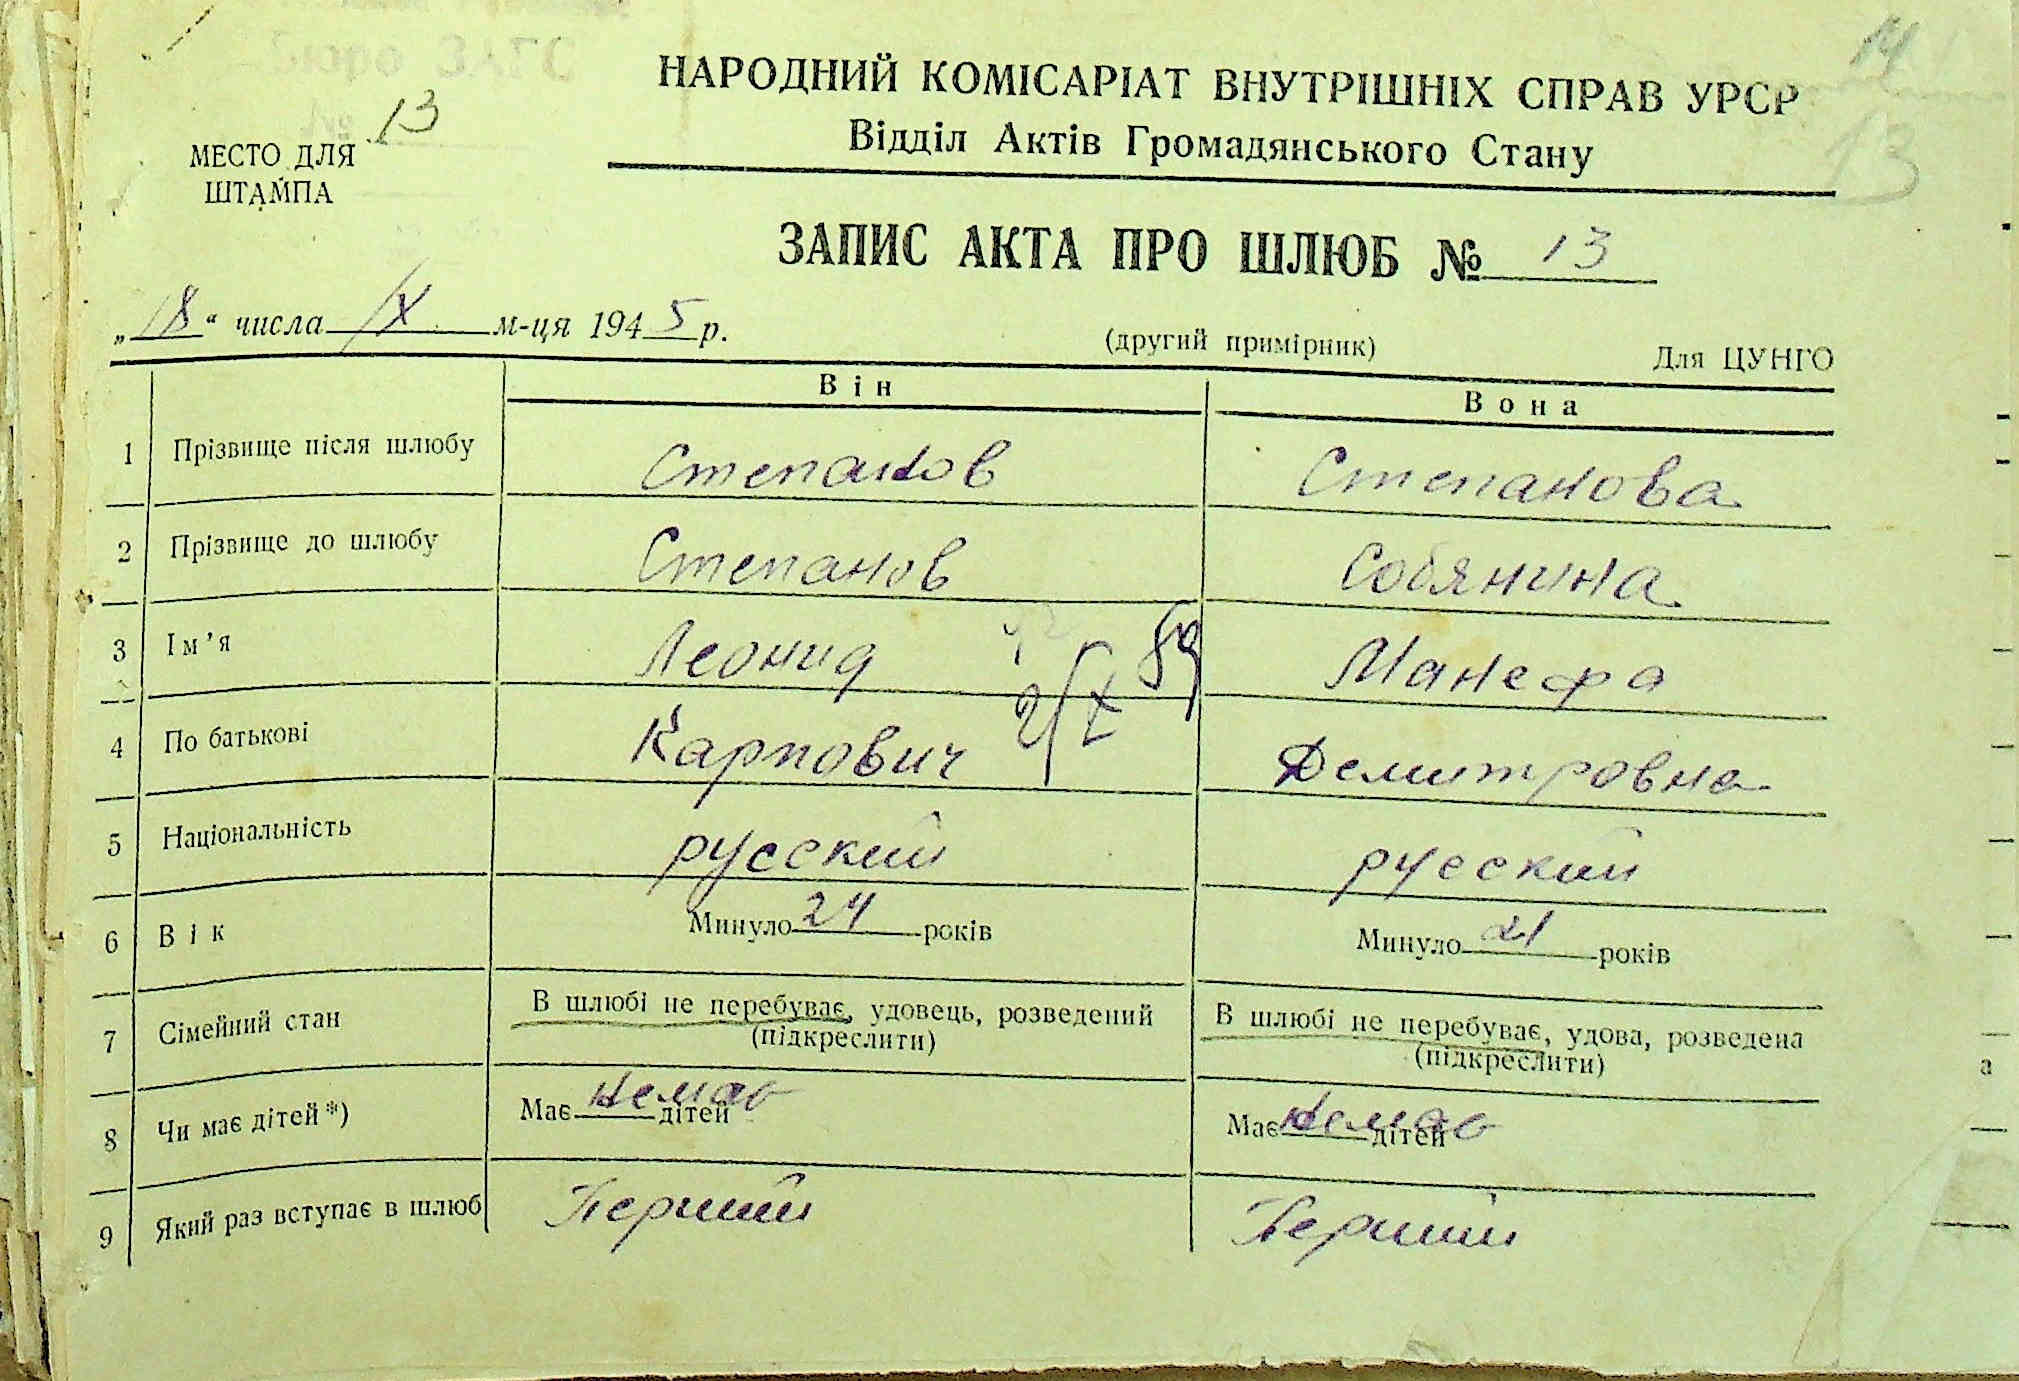 14
НАРОДНИЙ КОМІСАРІАТ ВНУТРІШНІХ СПРАВ УРСР
13
Відділ Актів Громадянського Стану
13
МЕСТО ДЛЯ
ШТАМПА
ЗАПИС АКТА ПРО ШЛЮБ № 13
„18“ числа IX м-ця 1945 р.
(другий примірник)
Для ЦУНГО
Він Вона
1 Прізвище після шлюбу Степанов Степанова
2 Прізвище до шлюбу Степанов Собянина
3 Ім’я Леонид Манефа
4 По батькові Карпович Демитровна
5 Національність русский русский
6 Вік Минуло 24 років Минуло 21 років
7 Сімейний стан В шлюбі не перебуває, удовець, розведений В шлюбі не перебуває, удова, розведена
(підкреслити) (підкреслити)
8 Чи має дітей*) Має немає дітей Має немає дітей
9 Який раз вступає в шлюб Перший Перший